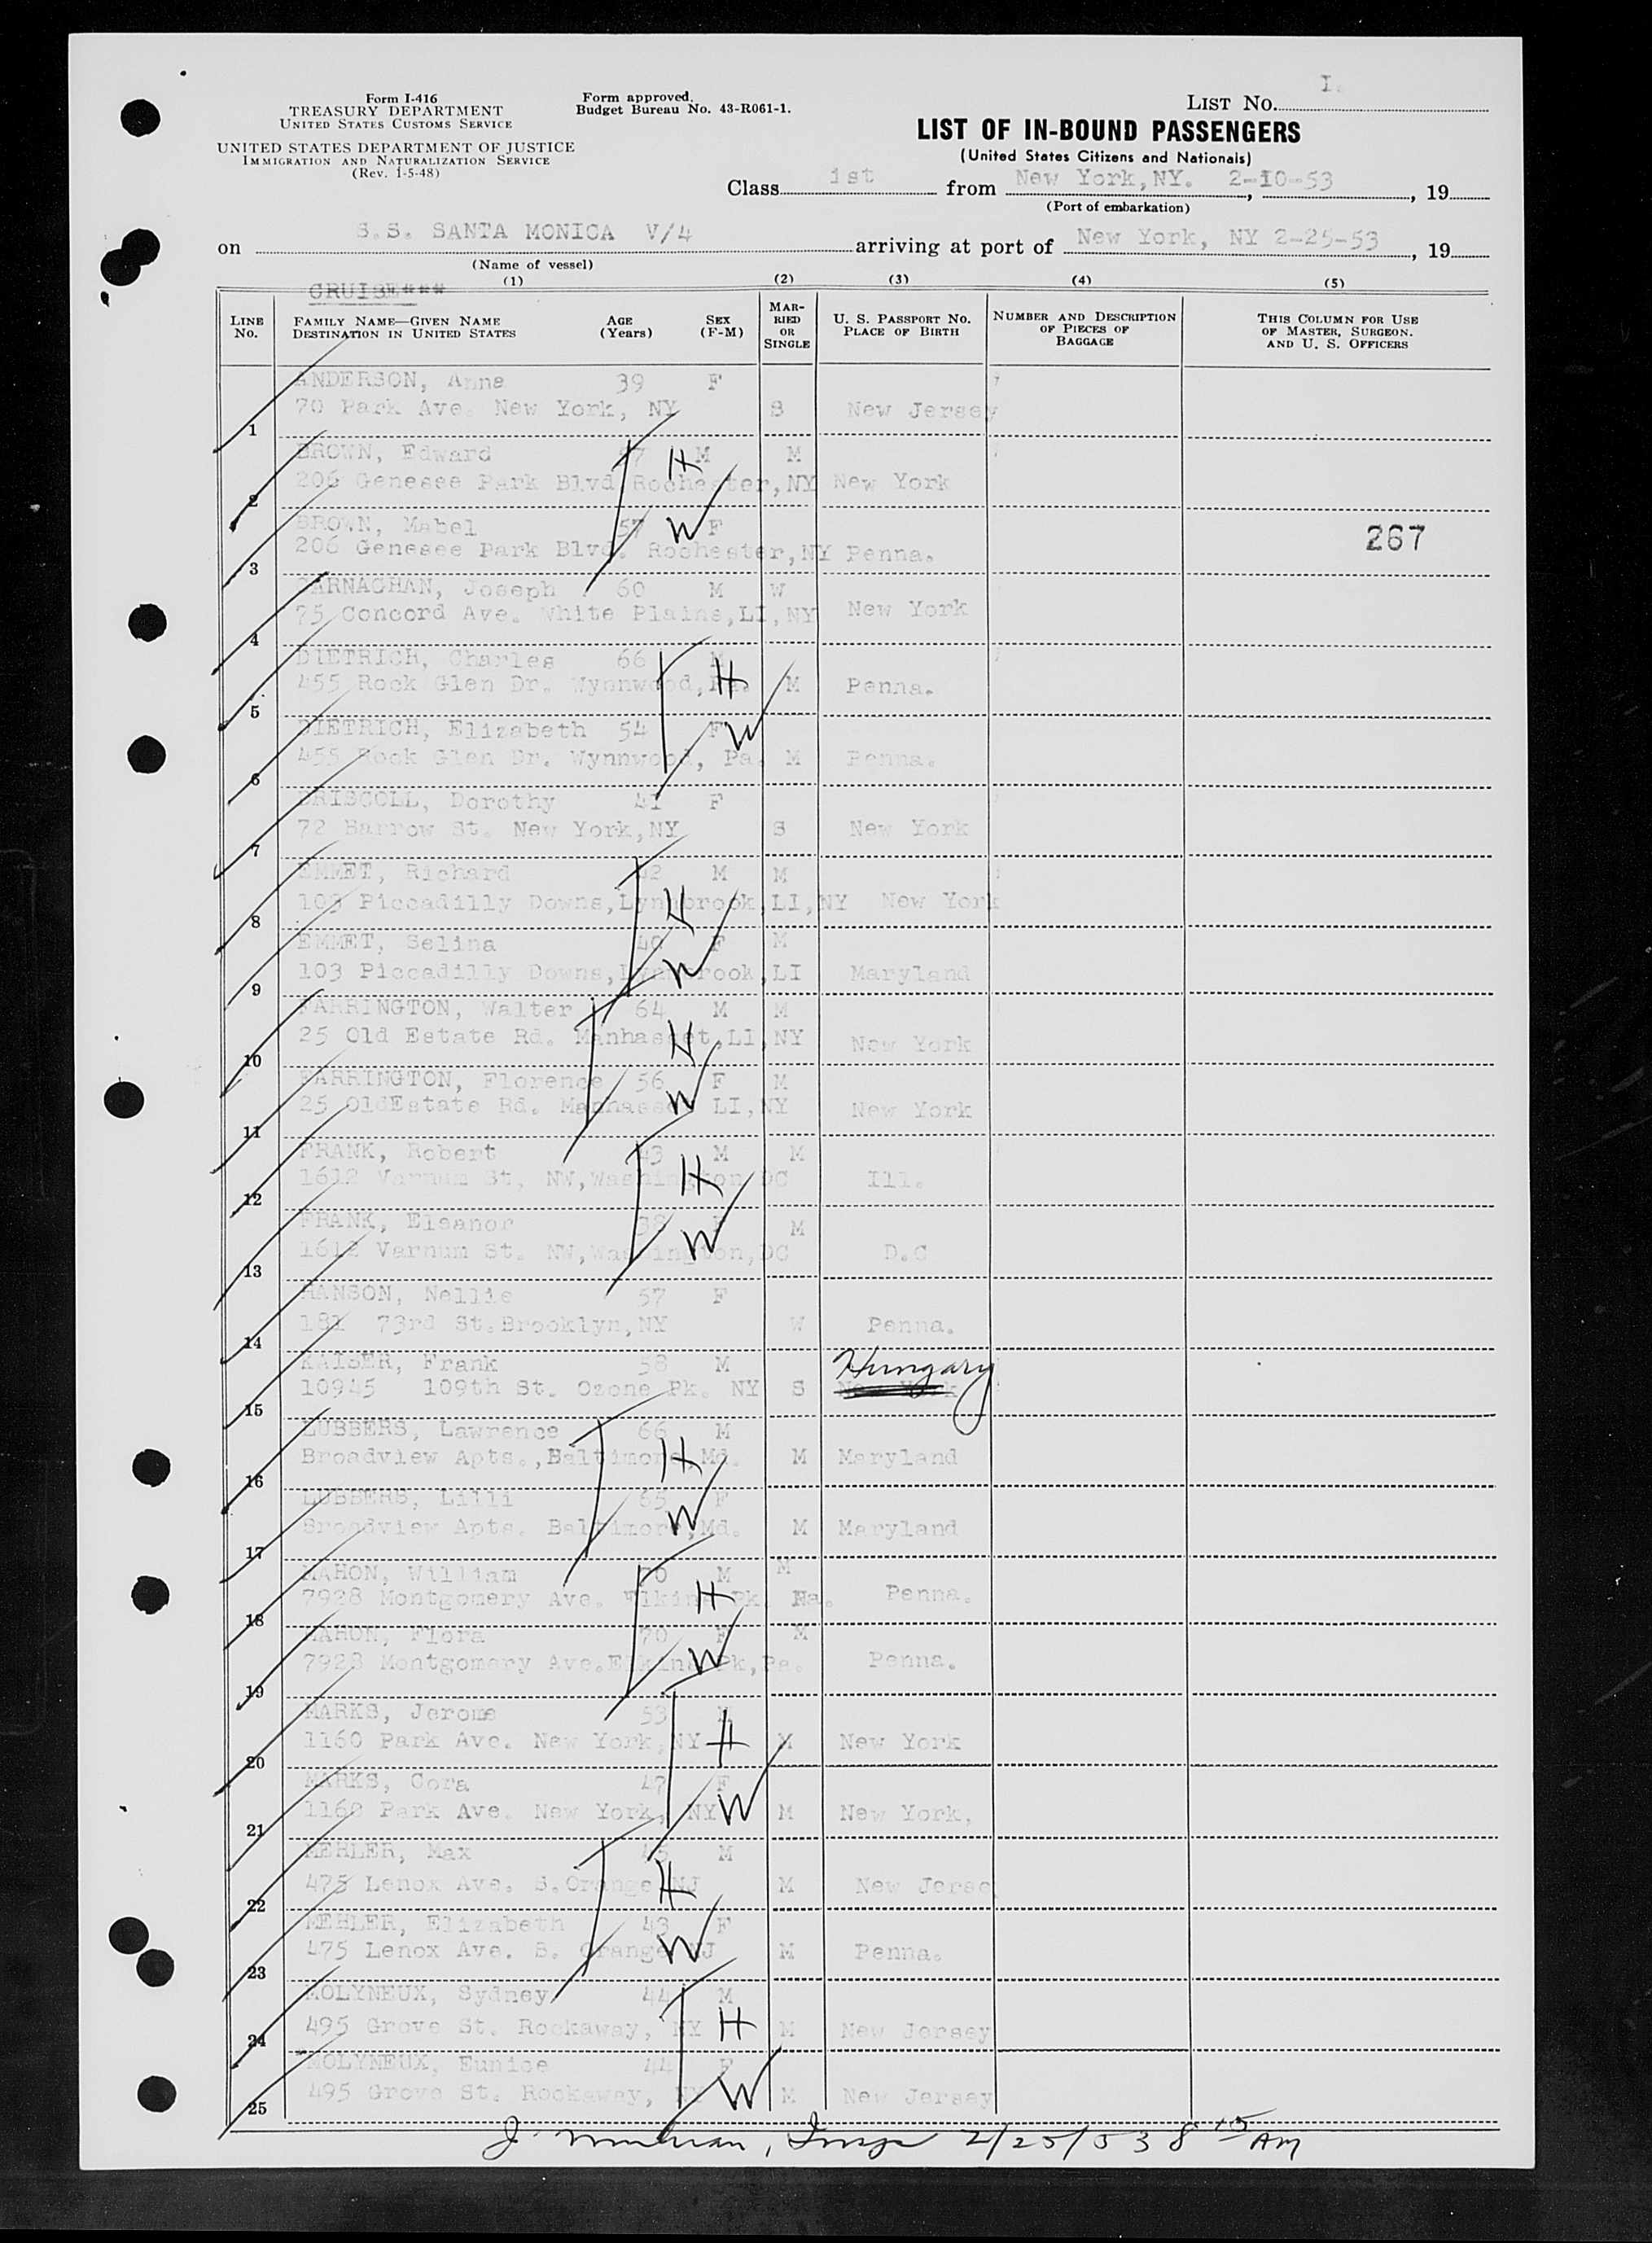 Form I-416
TREASURY DEPARTMENT
UNITED STATES CUSTOMS SERVICE
UNITED STATES DEPARTMENT OF JUSTICE
IMMIGRATION AND NATURALIZATION SERVICE
(Rev. 1-5-48)
Form approved.
Budget Bureau No. 43-R061-1.
LIST No. I.
LIST OF IN-BOUND PASSENGERS
(United States Citizens and Nationals)
Class 1st from New York, NY. 2-10-53, 19
(Port of embarkation)
on S.S. SANTA MONICA V/4 arriving at port of New York, NY 2-25-53, 19
(Name of vessel)
CRUISE***
(1) (2) (3) (4) (5)
LINE No. FAMILY NAME—GIVEN NAME DESTINATION IN UNITED STATES AGE (Years) SEX (F-M) MARRIED OR SINGLE U. S. PASSPORT No. PLACE OF BIRTH NUMBER AND DESCRIPTION OF PIECES OF BAGGAGE THIS COLUMN FOR USE OF MASTER, SURGEON, AND U. S. OFFICERS
ANDERSON, Anna 39 F
1 70 Park Ave. New York, NY S New Jersey
BROWN, Edward M M H
2 206 Genesee Park Blvd Rochester, NY New York
BROWN, Mabel 57 F W
3 206 Genesee Park Blvd. Rochester, NY Penna.
267
CARNAGHAN, Joseph 60 M W
4 75 Concord Ave. White Plains, LI, NY New York
DIETRICH, Charles 66 M H
5 455 Rock Glen Dr. Wynnwood, Pa. M Penna.
DIETRICH, Elizabeth 54 F W
6 455 Rock Glen Dr. Wynnwood, Pa. M Penna.
DRISCOLL, Dorothy 41 F
7 72 Barrow St. New York, NY S New York
EMMET, Richard 42 M M H
8 103 Piccadilly Downs, Lynnbrook, LI, NY New York
EMMET, Selina 40 F M W
9 103 Piccadilly Downs, Lynnbrook, LI Maryland
FARRINGTON, Walter 64 M M H
10 25 Old Estate Rd. Manhasset, LI, NY New York
FARRINGTON, Florence 56 F M W
11 25 OldEstate Rd. Manhasset LI, NY New York
FRANK, Robert 43 M M H
12 1612 Varnum St. NW, Washington DC Ill.
FRANK, Eleanor 38 F M W
13 1612 Varnum St. NW, Washington, DC D.C
HANSON, Nellie 57 F
14 181 73rd St. Brooklyn, NY W Penna.
KAISER, Frank 58 M Hungary
15 10945 109th St. Ozone Pk. NY S New York
LUBBERS, Lawrence 66 M H
16 Broadview Apts., Baltimore, Md. M Maryland
LUBBERS, Lilli 65 F W
17 Broadview Apts. Baltimore, Md. M Maryland
MAHON, William 70 M M H
18 7928 Montgomery Ave. Elkins Pk. Pa. Penna.
MAHON, Flora 70 F M W
19 7928 Montgomery Ave. Elkins Pk, Pa. Penna.
MARKS, Jerome 53 M H
20 1160 Park Ave. New York, NY M New York
MARKS, Cora 47 F W
21 1160 Park Ave. New York, NY M New York,
MEHLER, Max 45 M H
22 475 Lenox Ave. S. Orange NJ M New Jerse
MEHLER, Elizabeth 43 F W
23 475 Lenox Ave. S. Orange NJ M Penna.
MOLYNEUX, Sydney 44 M H
24 495 Grove St. Rockaway, NY M New Jersey
MOLYNEUX, Eunice 44 F W
25 495 Grove St. Rockaway, NY M New Jersey
2/25/53 8 15 AM